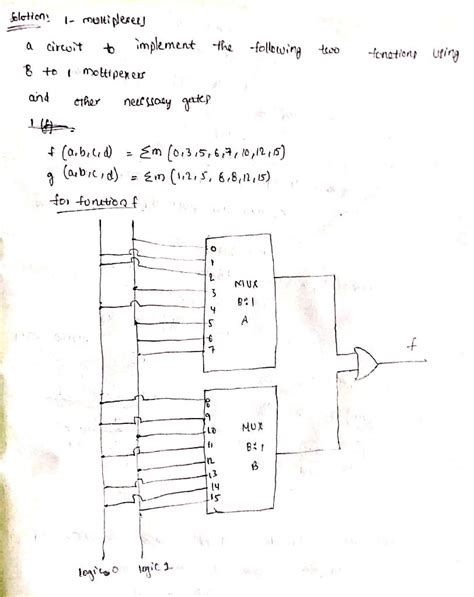 Solution: 1- multiplexers
a circuit to implement the following two functions using
8 to 1 moltipexers
and other necessary gates
1 (f)
f (a,b,c,d) = Σm (0,3,5,6,7,10,12,15)
g (a,b,c,d) = Σm (1,2,5, 6,8,12,15)
for function f
0
1
2
3
4
5
6
7
MUX
8:1
A
f
8
9
10
11
12
13
14
15
MUX
8:1
B
logic 0
logic 1